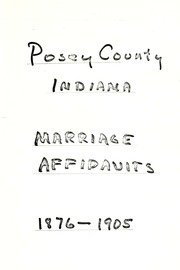 Posey County
INDIANA
MARRIAGE
AFFIDAVITS
1876-1905